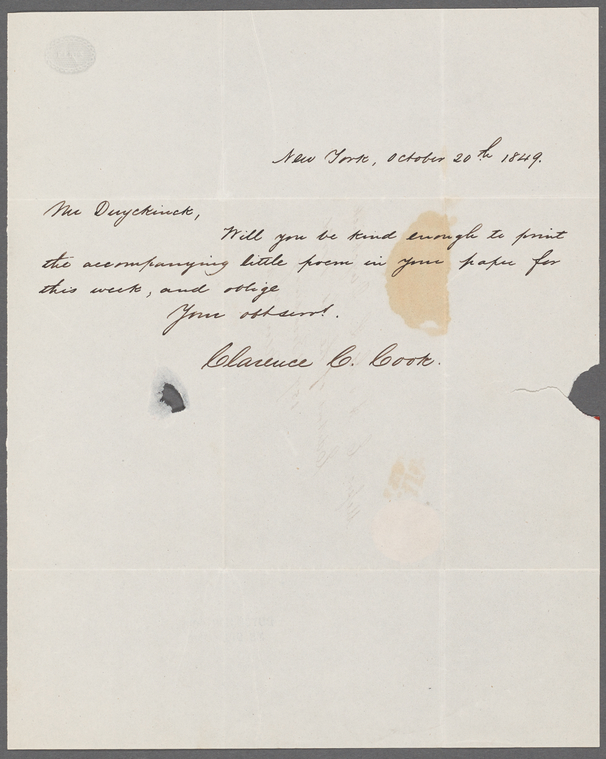 New York, October 20th 1849.
Mr Duyckinck,
Will you be kind enough to print
the accompanying little poem in your paper for
this week, and oblige
Your obt servt.
Clarence C. Cook.